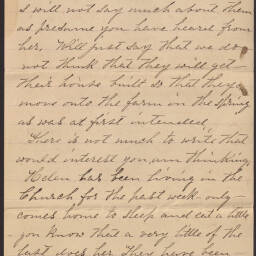 I will not say much about them
as presume you have heard from
her. Will just say that we do
not think that they will get
their house built so that they
move onto the farm in the spring
as was at first intended,
There is not much to write that
would interest you, am thinking.
Helen has been living in the
Church for the past week - only
comes home to sleep and eat a little
you know that a very little of the
last does her. They have been